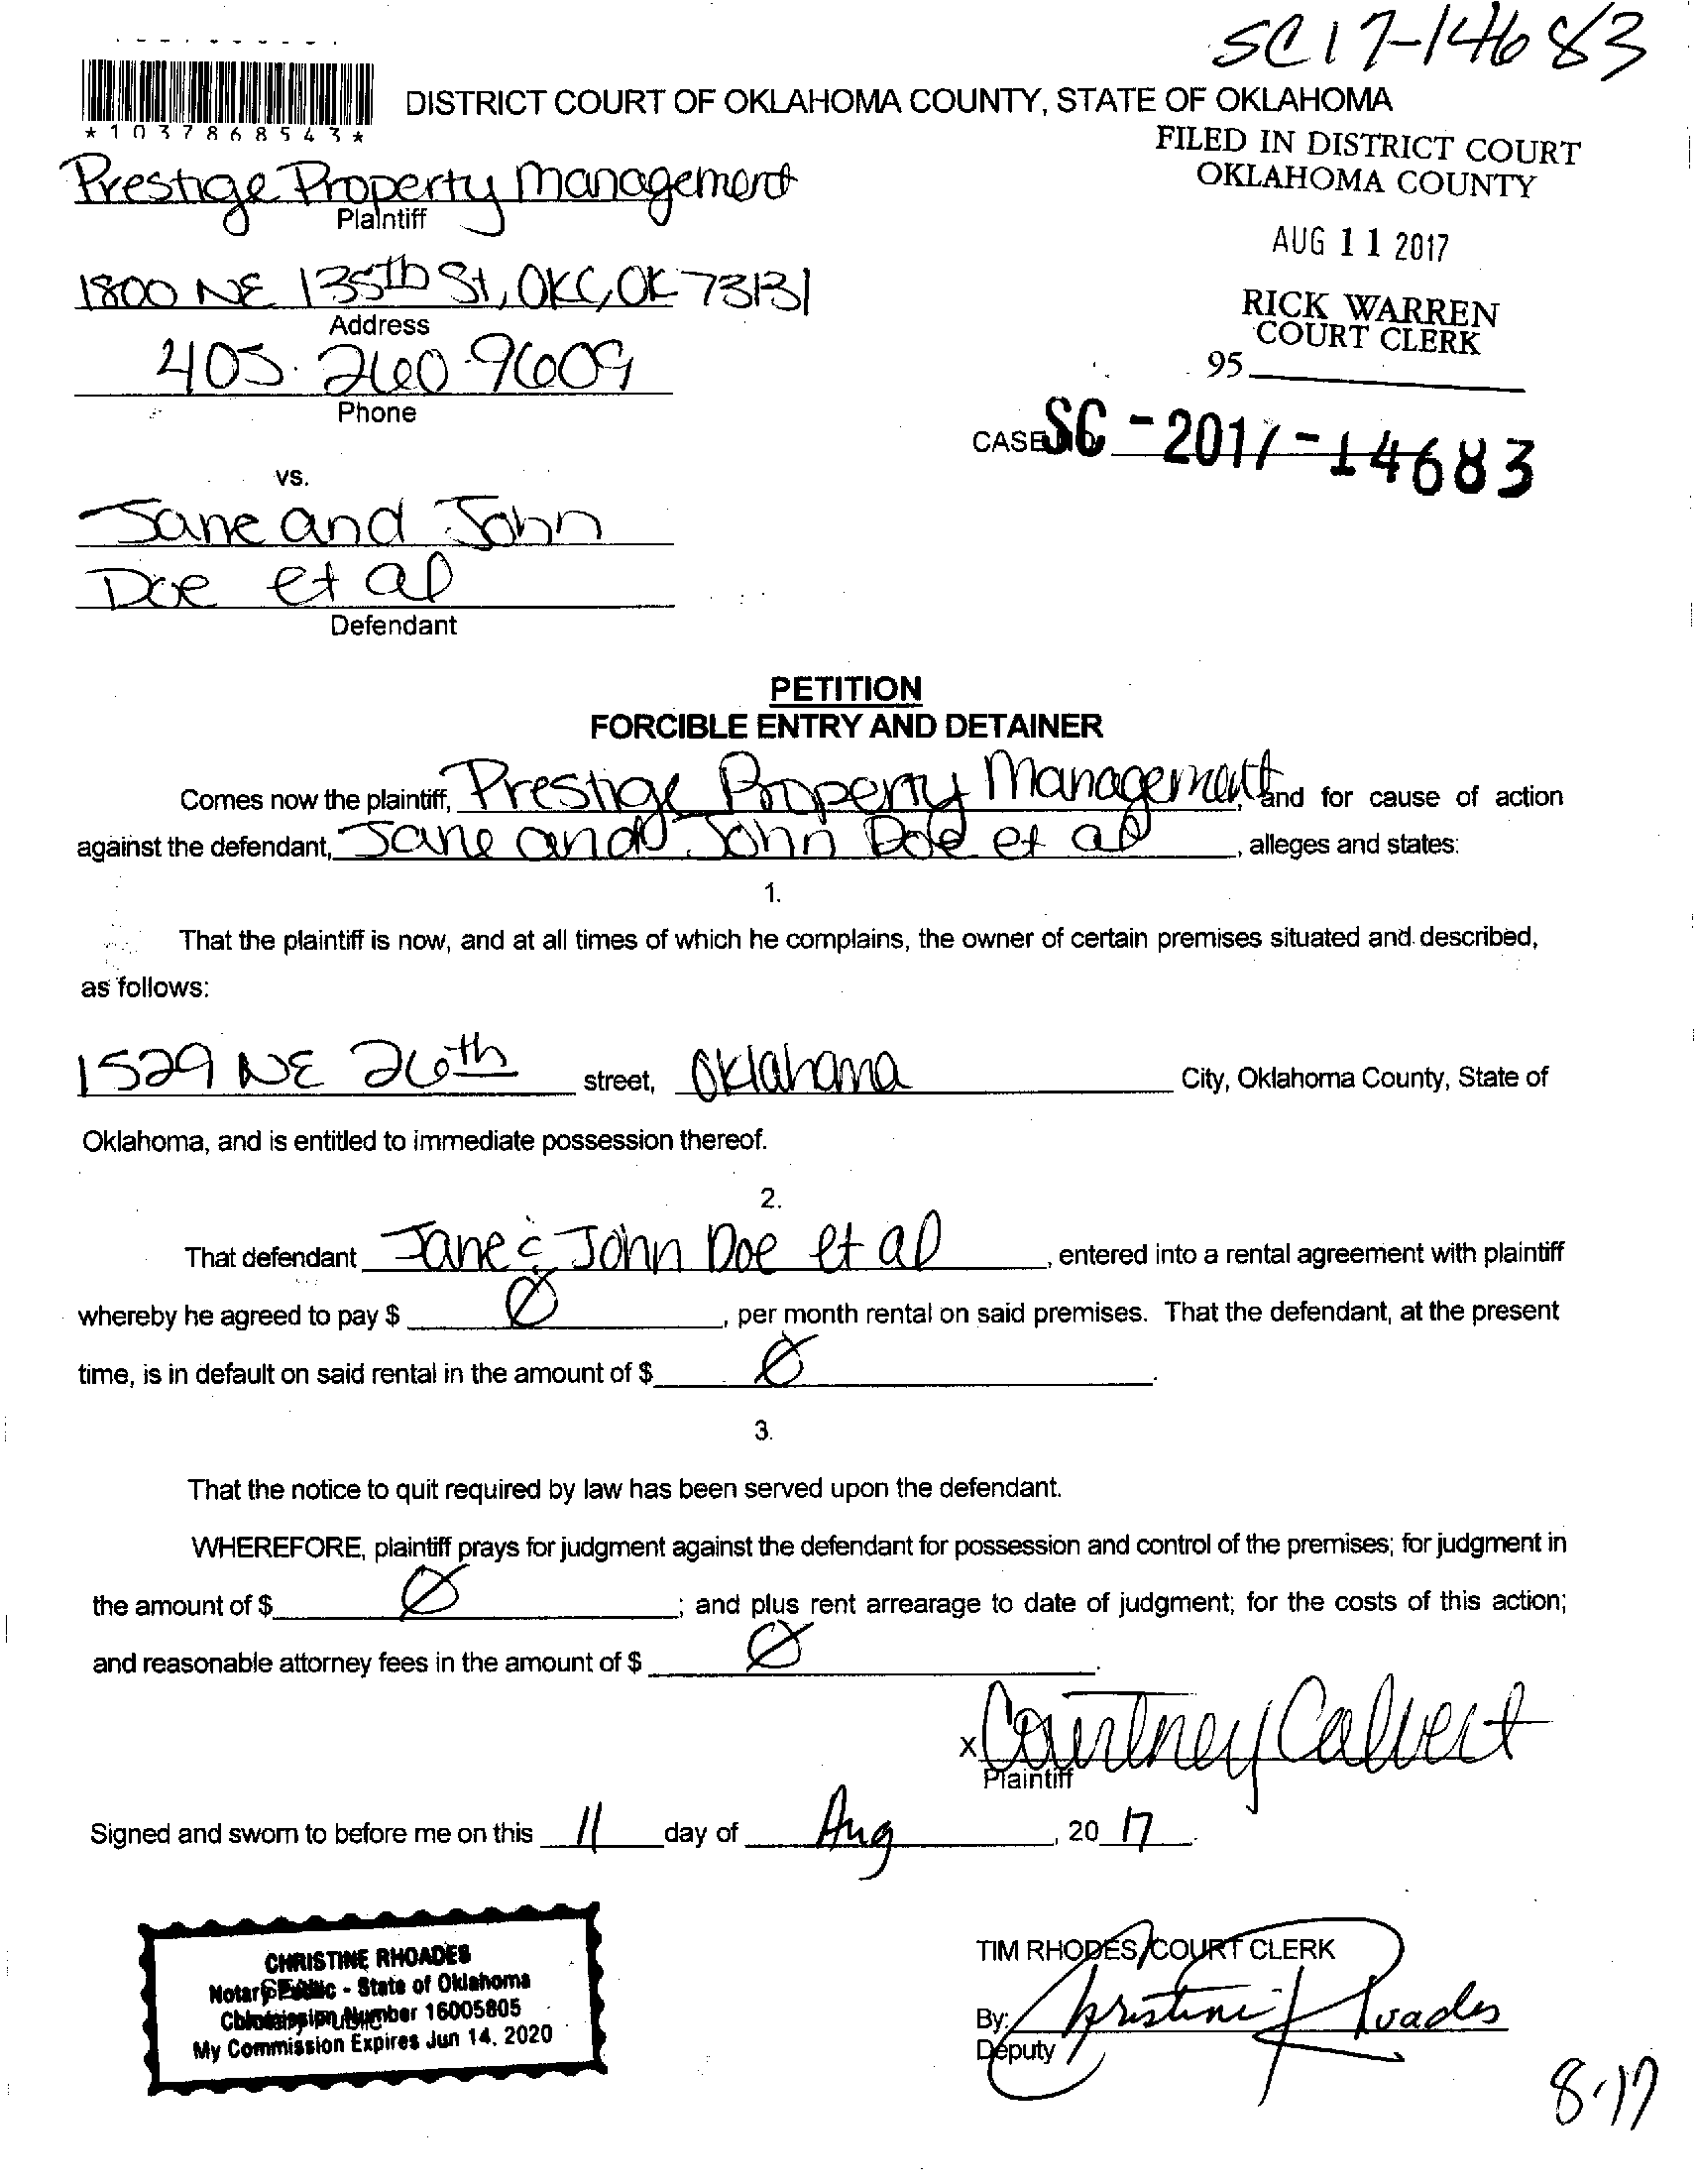 SC17-14683
*1037868543*
DISTRICT COURT OF OKLAHOMA COUNTY, STATE OF OKLAHOMA
FILED IN DISTRICT COURT
OKLAHOMA COUNTY
Prestige Property Management
Plaintiff
AUG 11 2017
1800 NE 135th St, OKC, OK 73131
Address
RICK WARREN
COURT CLERK
405-260-9609
Phone
95
CASE NO. SC-2017-14683
vs.
Jane and John
Doe et al
Defendant
PETITION
FORCIBLE ENTRY AND DETAINER
Comes now the plaintiff, Prestige Property Management, and for cause of action
against the defendant, Jane and John Doe et al, alleges and states:
1.
That the plaintiff is now, and at all times of which he complains, the owner of certain premises situated and described,
as follows:
1529 NE 26th street, Oklahoma City, Oklahoma County, State of
Oklahoma, and is entitled to immediate possession thereof.
2.
That defendant Jane & John Doe et al, entered into a rental agreement with plaintiff
whereby he agreed to pay $ Ø, per month rental on said premises. That the defendant, at the present
time, is in default on said rental in the amount of $ Ø.
3.
That the notice to quit required by law has been served upon the defendant.
WHEREFORE, plaintiff prays for judgment against the defendant for possession and control of the premises; for judgment in
the amount of $ Ø; and plus rent arrearage to date of judgment; for the costs of this action;
and reasonable attorney fees in the amount of $ Ø.
x Courtney Calvert
Plaintiff
Signed and sworn to before me on this 11 day of Aug, 2017.
CHRISTINE RHOADES
Notary Public - State of Oklahoma
Commission Number 16005805
My Commission Expires Jun 14, 2020
TIM RHODES, COURT CLERK
By: Christine Rhoades
Deputy
8-17